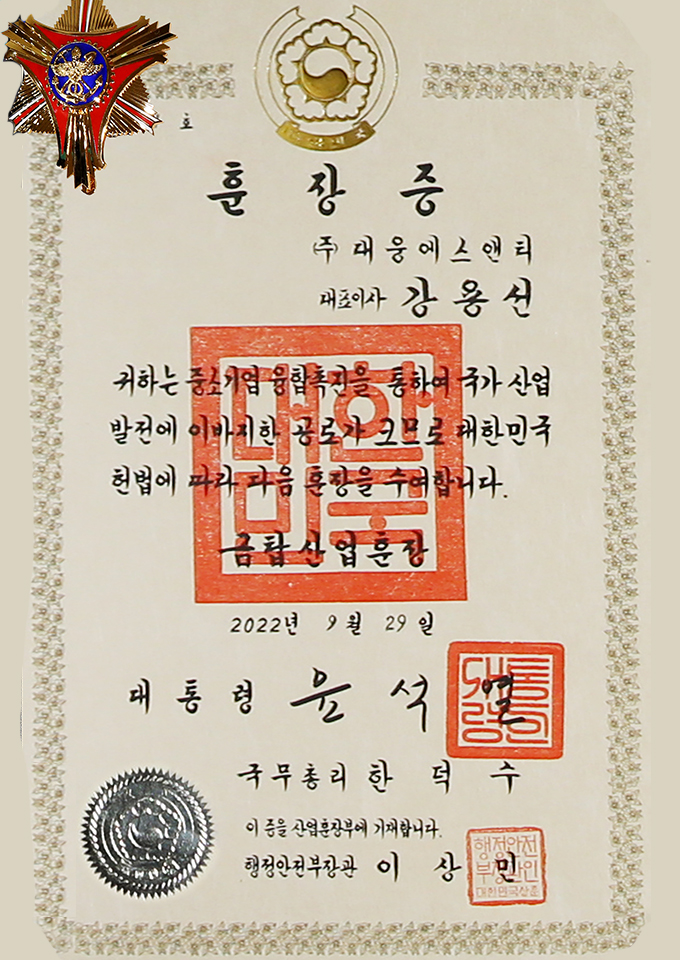 호
훈장증
(주)대웅에스앤티
대표이사 강용선
귀하는 중소기업 융합촉진을 통하여 국가 산업
발전에 이바지한 공로가 크므로 대한민국
헌법에 따라 다음 훈장을 수여합니다.
금탑산업훈장
2022년 9월 29일
대통령 윤석열
국무총리 한덕수
이 증을 산업훈장부에 기재합니다.
행정안전부장관 이상민